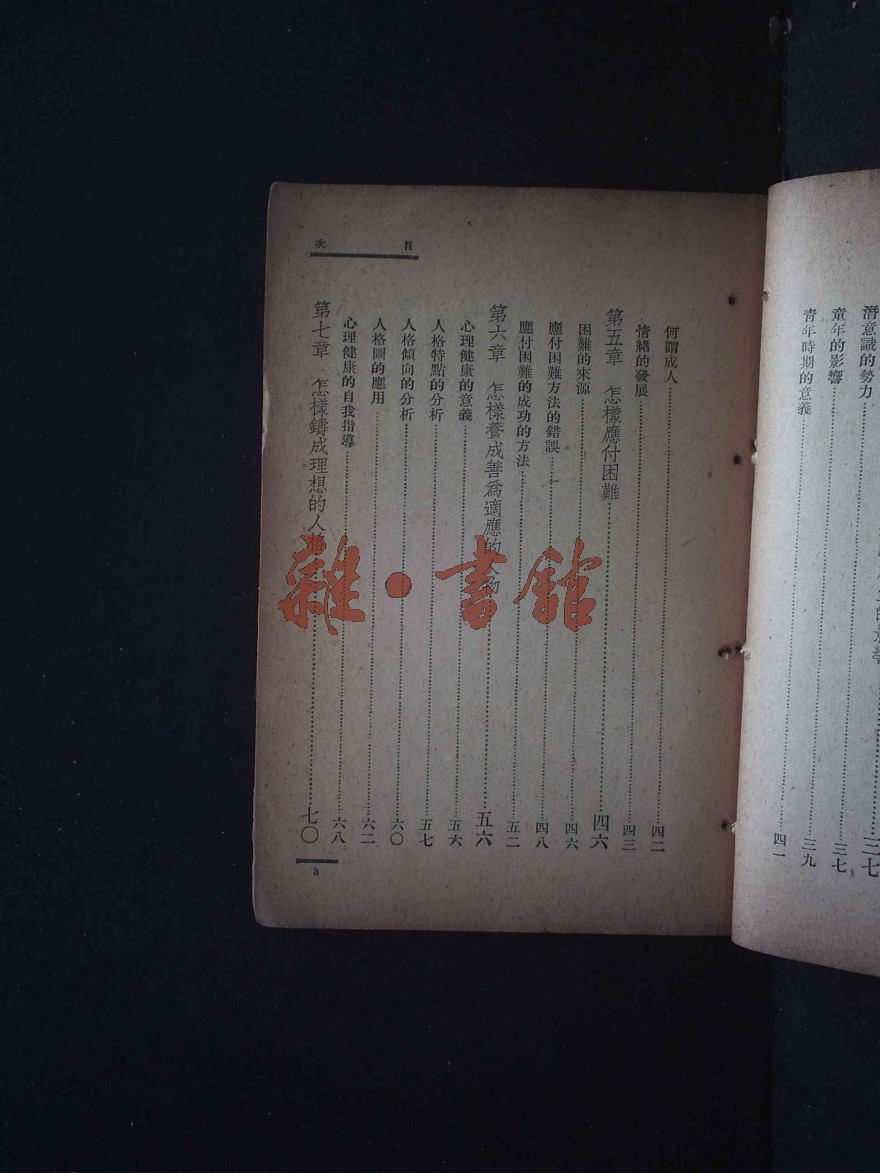 潛意識的勢力
童年的影響……三七
青年時期的意義……三九
四一
目次
何謂成人……四二
情緒的發展……四三
第五章 怎樣應付困難……四六
困難的來源……四六
應付困難方法的錯誤……四八
應付困難的成功的方法……五二
第六章 怎樣養成善爲適應的人物……五六
心理健康的意義……五六
人格特點的分析……五七
人格傾向的分析……六〇
人格圖的應用……六二
心理健康的自我指導……六八
第七章 怎樣鑄成理想的人格……七〇
3
雜·書館